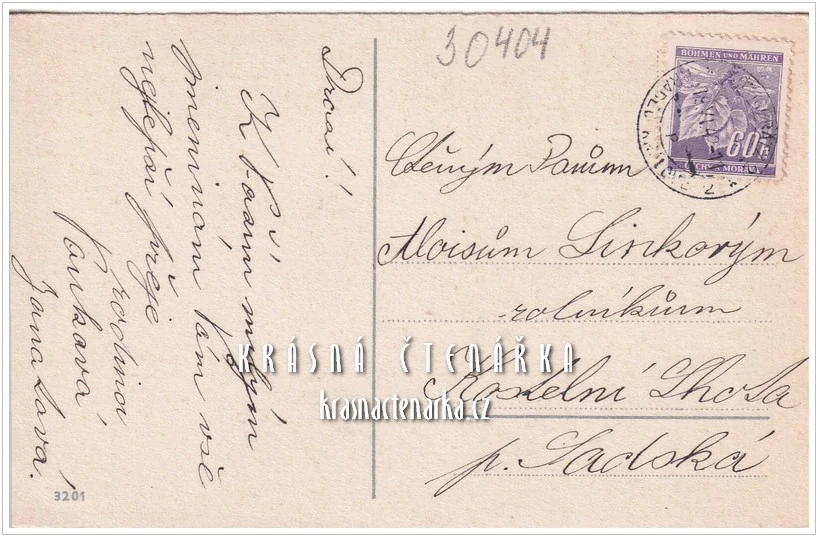 30404
BÖHMEN UND MÄHREN
60h
ČECHY A MORAVA
Drazí!
K Vašim milým
jmeninám Vám vše
nejlepší přeje
rodina
Jana Lová.
Ctěným Panům
Aloisům Linkovým
rolníkům
Kostelní Lhota
p. Sadská
KRÁSNÁ ČTENÁŘKA
krasnactenarka.cz
3201